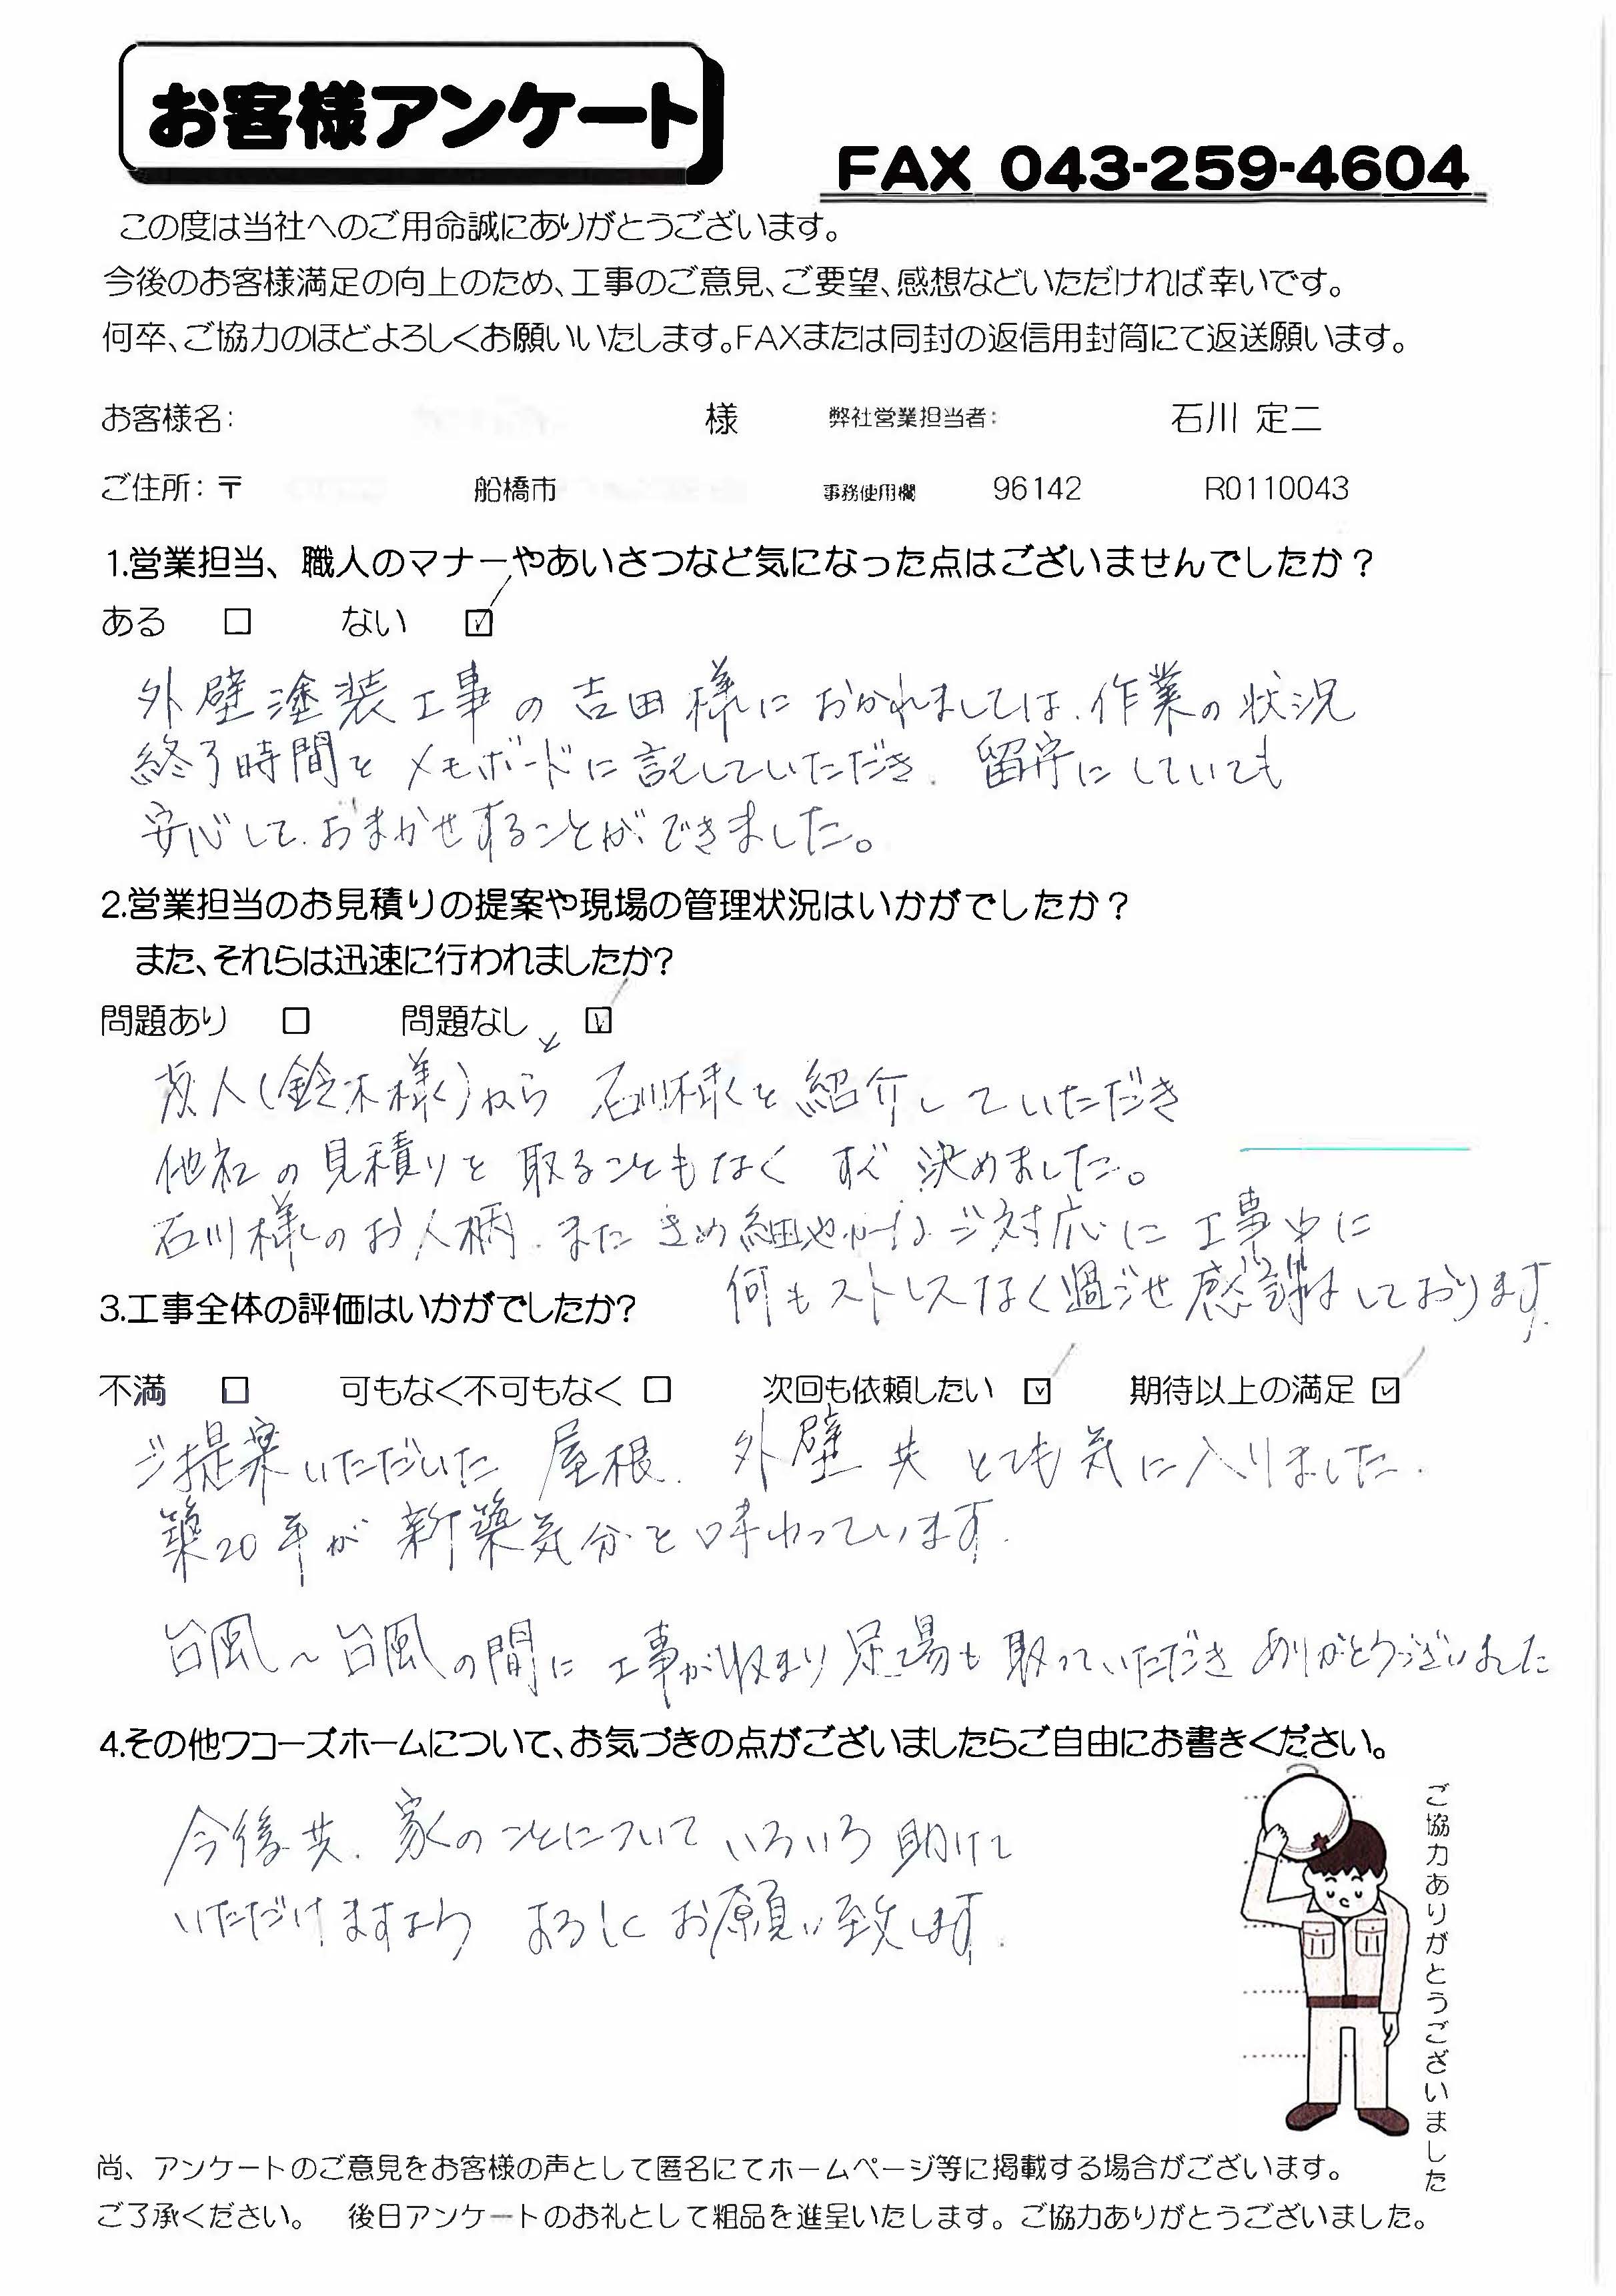 お客様アンケート
FAX 043-259-4604
この度は当社へのご用命誠にありがとうございます。
今後のお客様満足の向上のため、工事のご意見、ご要望、感想などいただければ幸いです。
何卒、ご協力のほどよろしくお願いいたします。FAXまたは同封の返信用封筒にて返送願います。
お客様名: 様 弊社営業担当者: 石川 定二
ご住所: 〒 船橋市 事務使用欄 96142 R0110043
1.営業担当、職人のマナーやあいさつなど気になった点はございませんでしたか？
ある □ ない ☑
外壁塗装工事の吉田様におかれましては、作業の状況
終了時間をメモボードに記していただき、留守にしていても
安心して、おまかせすることができました。
2.営業担当のお見積りの提案や現場の管理状況はいかがでしたか？
また、それらは迅速に行われましたか?
問題あり □ 問題なし ☑
友人(鈴木様)から 石川様を紹介していただき
他社の見積りを取ることもなく すぐ 決めました。
石川様のお人柄、また きめ細やかなご対応に 工事中に
何もストレスなく過ごせ感謝しております。
3.工事全体の評価はいかがでしたか?
不満 □ 可もなく不可もなく □ 次回も依頼したい ☑ 期待以上の満足 ☑
ご提案いただいた 屋根、外壁 共 とても気に入りました。
築20年が 新築気分を味わっています。
台風～台風の間に 工事が収まり足場も取っていただきありがとうございました
4.その他ワコーズホームについて、お気づきの点がございましたらご自由にお書きください。
今後共、家のことについて いろいろ 助けて
いただけますよう よろしく お願い致します。
ご協力ありがとうございました
尚、アンケートのご意見をお客様の声として匿名にてホームページ等に掲載する場合がございます。
ご了承ください。 後日アンケートのお礼として粗品を進呈いたします。ご協力ありがとうございました。